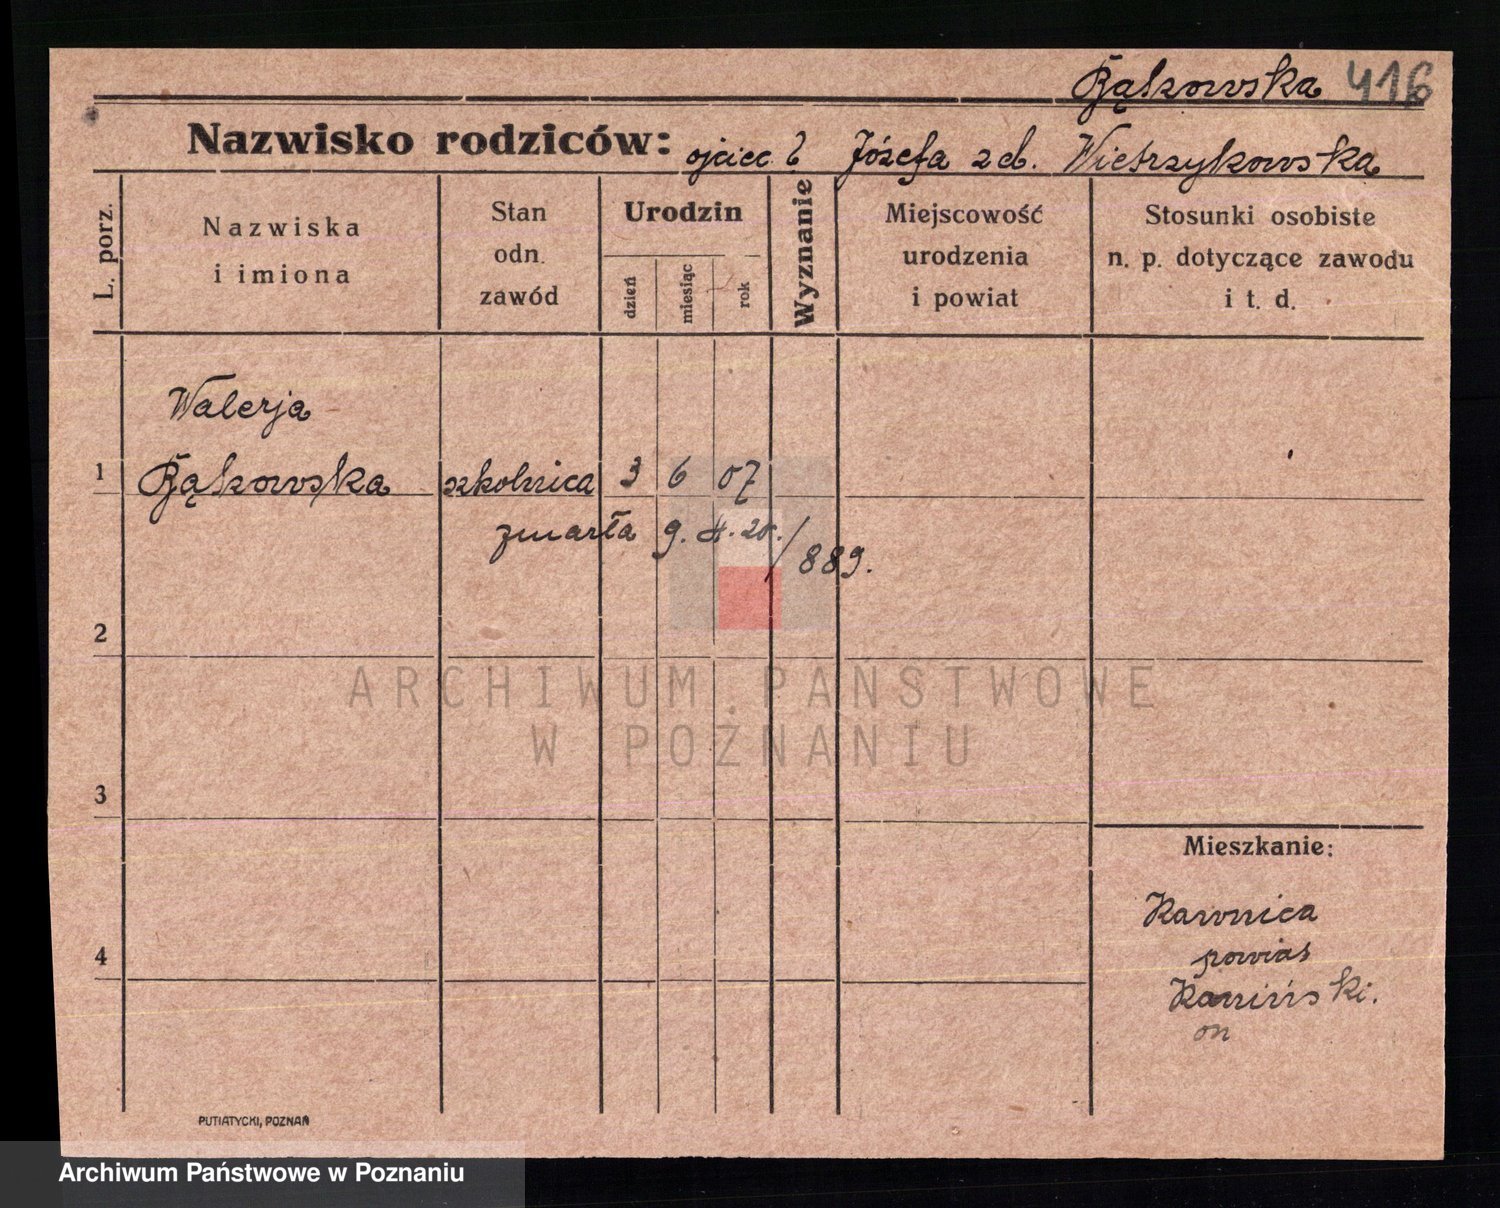 Bąkowska 416
Nazwisko rodziców: ojciec ? Józefa zd. Wietrzykowska
L. porz.
Nazwiska
i imiona
Stan
odn.
zawód
Urodzin
dzień
miesiąc
rok
Wyznanie
Miejscowość
urodzenia
i powiat
Stosunki osobiste
n. p. dotyczące zawodu
i t. d.
Walerja
1 Bąkowska szkolnica 3 6 07
zmarła 9. 4. 20. / 889.
2
ARCHIWUM PAŃSTWOWE
W POZNANIU
3
Mieszkanie:
Kawnica
powiat
4
Koniński.
on
PUTIATYCKI, POZNAŃ
Archiwum Państwowe w Poznaniu